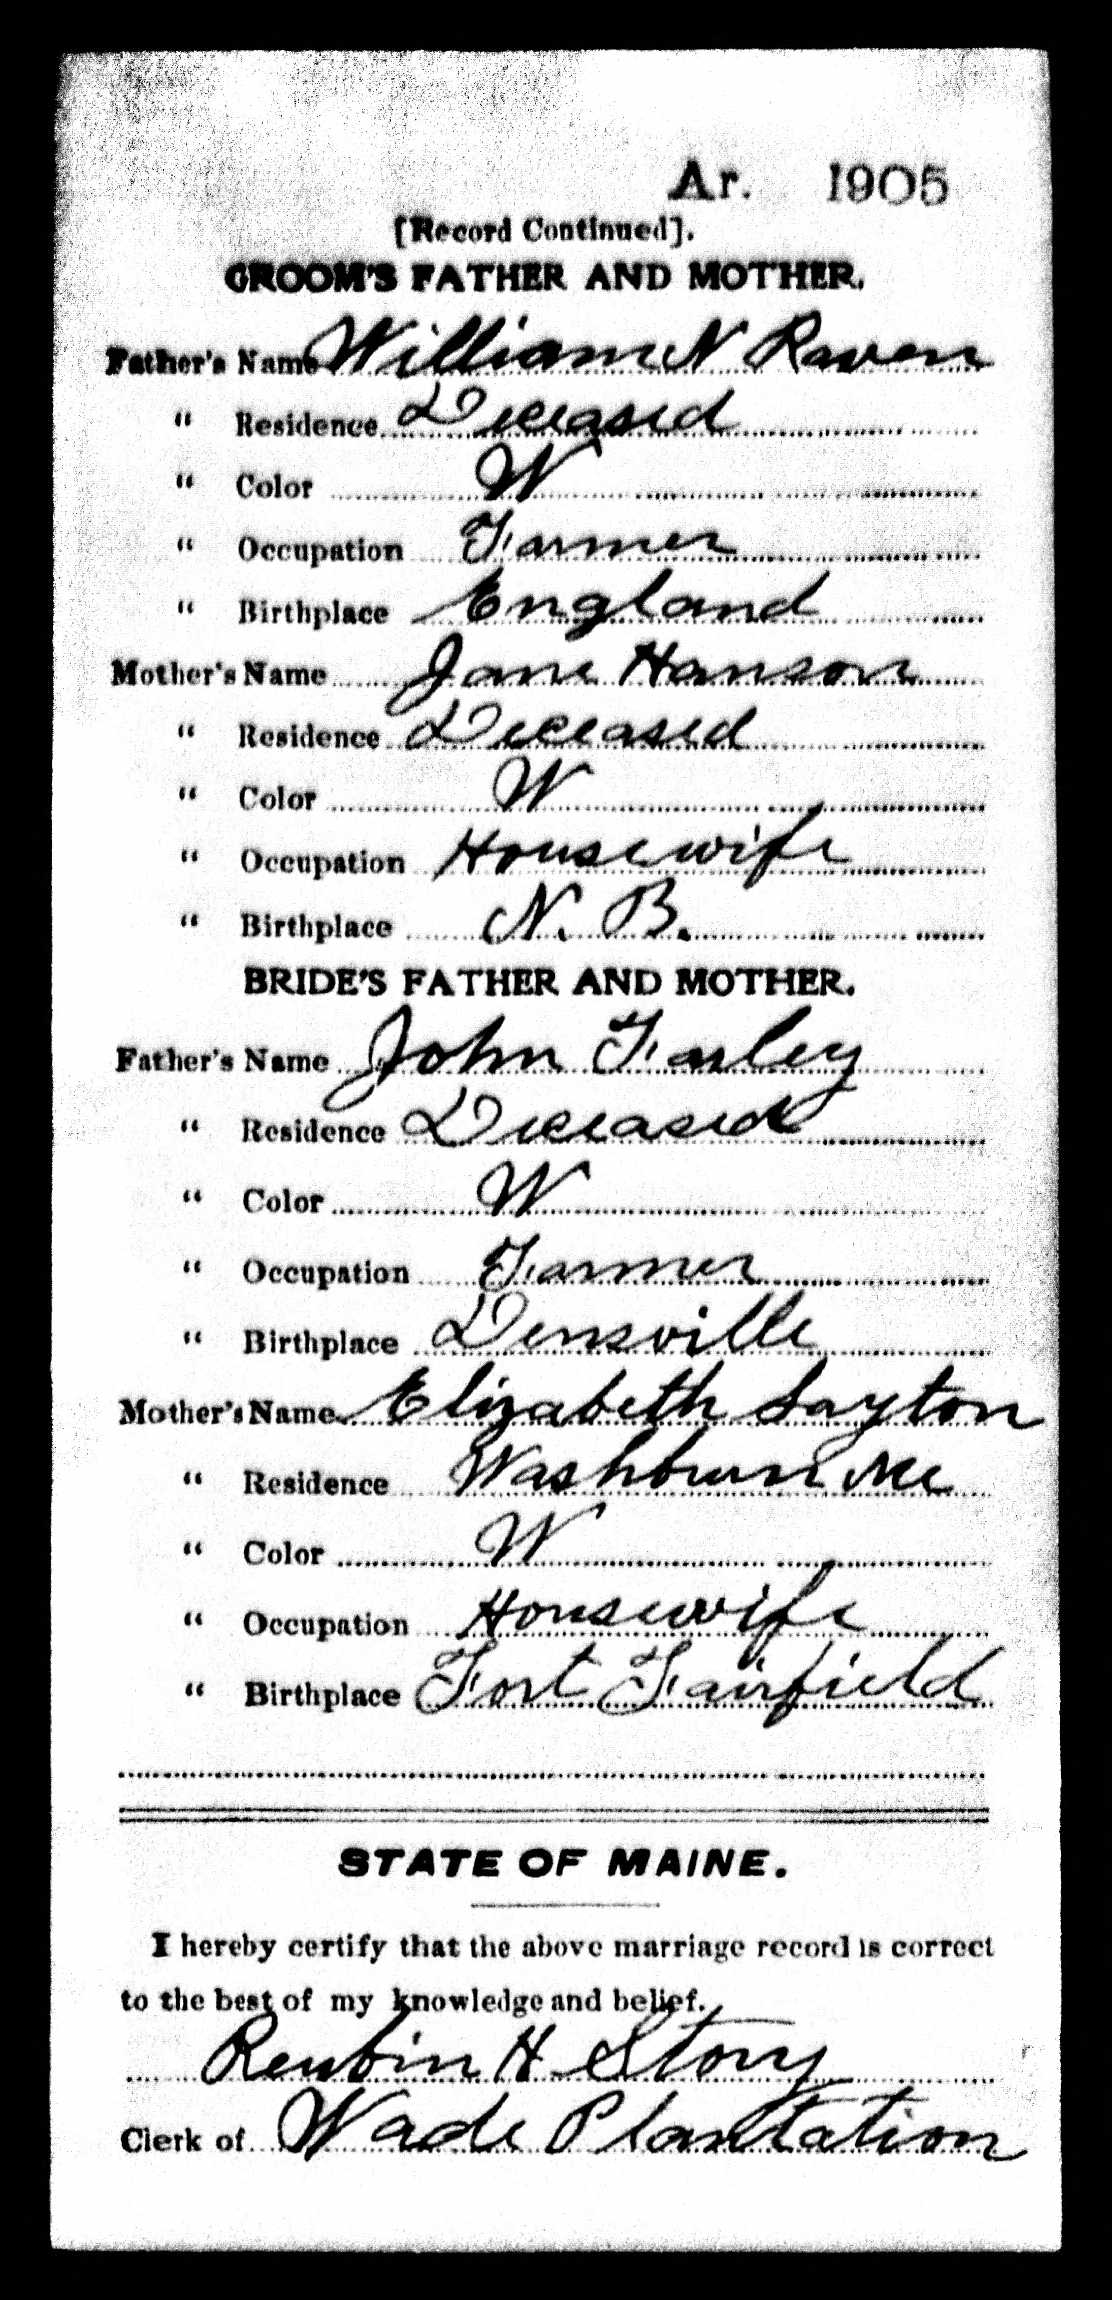 Ar. 1905
[Record Continued].
GROOM'S FATHER AND MOTHER.
Father's Name William N Raven
" Residence Deceased
" Color W
" Occupation Farmer
" Birthplace England
Mother's Name Jane Hanson
" Residence Deceased
" Color W
" Occupation Housewife
" Birthplace N. B.
BRIDE'S FATHER AND MOTHER.
Father's Name John Farley
" Residence Deceased
" Color W
" Occupation Farmer
" Birthplace Densville
Mother's Name Elizabeth Layton
" Residence Washburn Me
" Color W
" Occupation Housewife
" Birthplace Fort Fairfield
STATE OF MAINE.
I hereby certify that the above marriage record is correct
to the best of my knowledge and belief.
Reubin H Story
Clerk of Wade Plantation